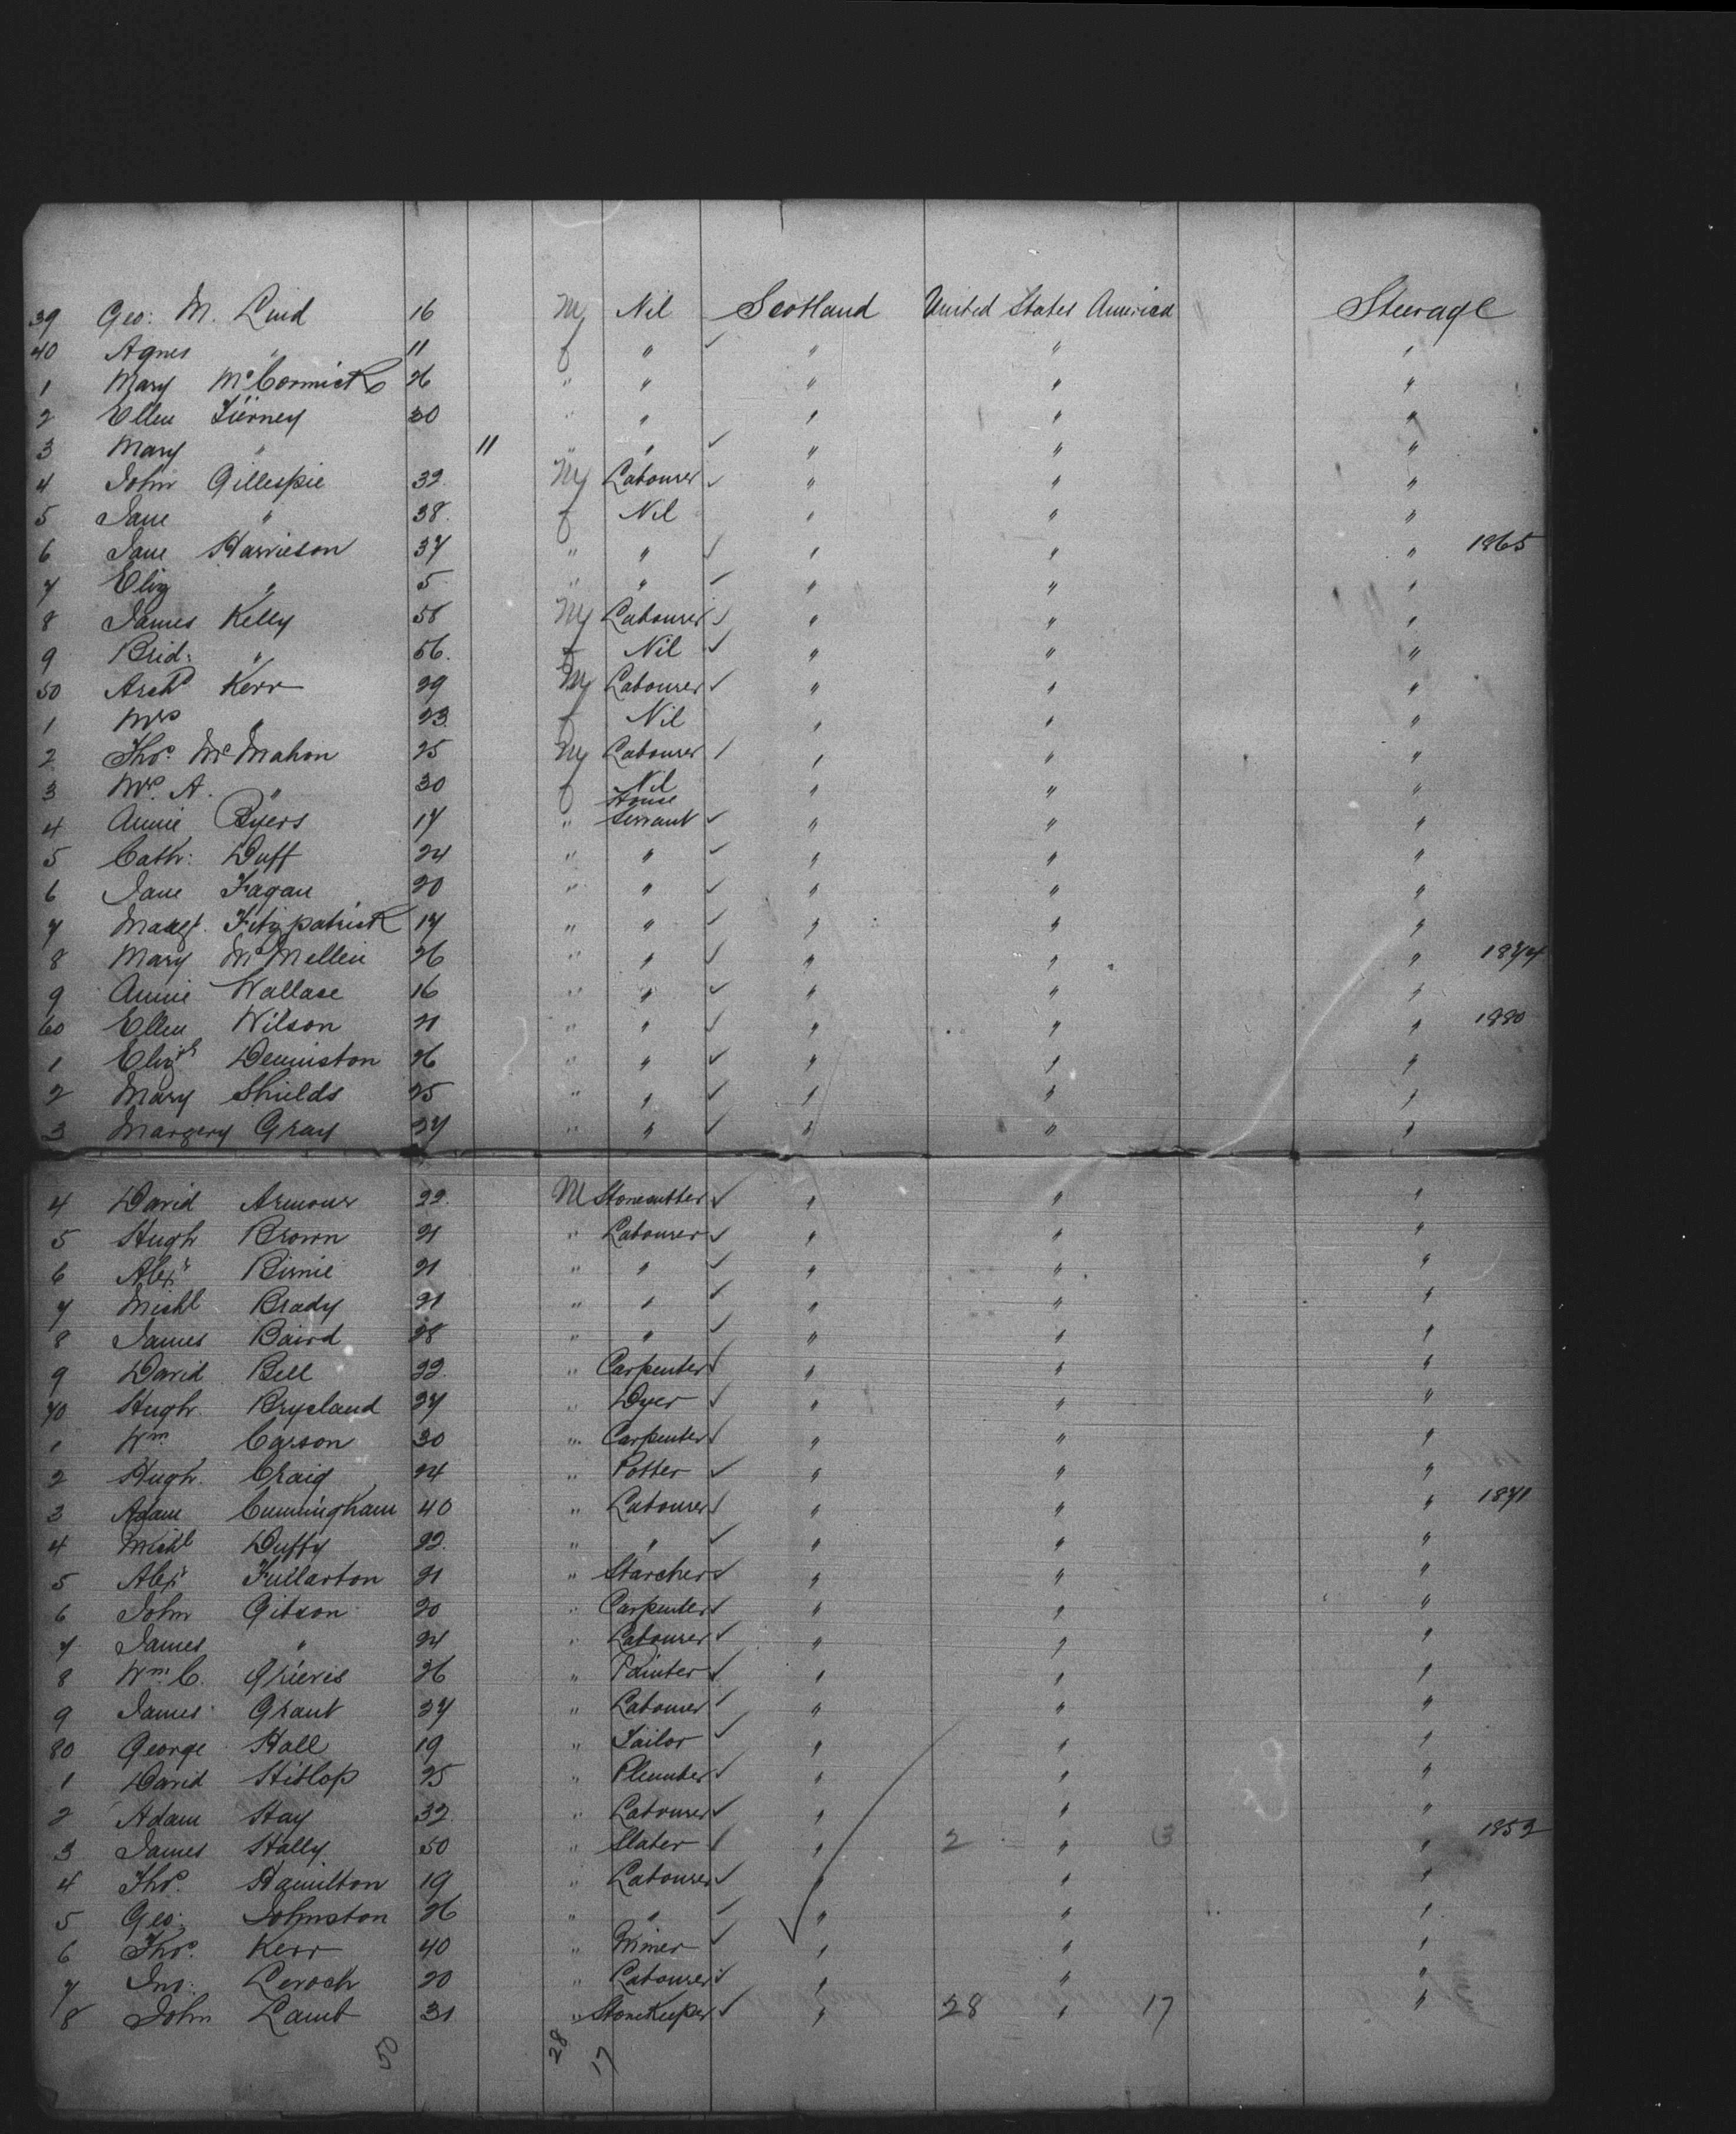 39 Geo: M. Lind 16 M Nil Scotland United States America Steerage
40 Agnes " 11 f " ✓ " " "
1 Mary McCormick 26 " " " " "
2 Ellen Tierney 30 " " " " "
3 Mary " 11 " " ✓ " " "
4 John Gillespie 32 M Labourer ✓ " " "
5 Jane " 38 f Nil " " "
6 Jane Harrieson 37 " " ✓ " " " 1865
7 Eliz " 5 " " ✓ " " "
8 James Kelly 58 M Labourer ✓ " " "
9 Brid: " 56 f Nil ✓ " " "
50 Archd Kerr 29 M Labourer ✓ " " "
1 Mrs " 23 f Nil " " "
2 Thos. McMahon 25 M Labourer ✓ " " "
3 Mrs. A. " 30 f Nil " " "
4 Annie Byers 17 " House Servant ✓ " " "
5 Cath: Duff 24 " " ✓ " " "
6 Jane Fagan 20 " " ✓ " " "
7 Margt. Fitzpatrick 17 " " ✓ " " "
8 Mary McMellin 26 " " ✓ " " " 1874
9 Annie Wallace 16 " " ✓ " " "
60 Ellen Wilson 21 " " ✓ " " " 1880
1 Elizth Denniston 26 " " ✓ " " "
2 Mary Shields 25 " " ✓ " " "
3 Margery Gray 27 " " ✓ " " "
4 David Armour 22 M Stonecutter ✓ " " "
5 Hugh Brown 21 " Labourer ✓ " " "
6 Alexr Birnie 21 " " ✓ " " "
7 Michl Brady 21 " " ✓ " " "
8 James Baird 28 " " ✓ " " "
9 David Bell 22 " Carpenter ✓ " " "
70 Hugh Bryeland 27 " Dyer ✓ " " "
1 Wm Carson 30 " Carpenter ✓ " " "
2 Hugh Craig 24 " Potter ✓ " " "
3 Adam Cunningham 40 " Labourer ✓ " " " 1871
4 Michl Duffy 22 " " ✓ " " "
5 Alexr Fullarton 21 " Starcher ✓ " " "
6 John Gibson 20 " Carpenter ✓ " " "
7 James " 24 " Labourer ✓ " " "
8 Wm. C. Grieves 26 " Painter ✓ " " "
9 James Grant 27 " Labourer ✓ " " "
80 George Hall 19 " Tailor ✓ " " "
1 David Hislop 25 " Plumber ✓ " " "
2 Adam Hay 32 " Labourer ✓ " " "
3 James Hally 50 " Slater ✓ " 2 " 3 " 1852
4 Thos. Hamilton 19 " Labourer ✓ " " "
5 Geo: Johnston 26 " " ✓ " " "
6 Thos. Kerr 40 " Miner ✓ " " "
7 Jno: Leroch 20 " Labourer ✓ " " "
8 John Lamb 31 " StoreKeeper ✓ " 28 " 17 "
50 28 17